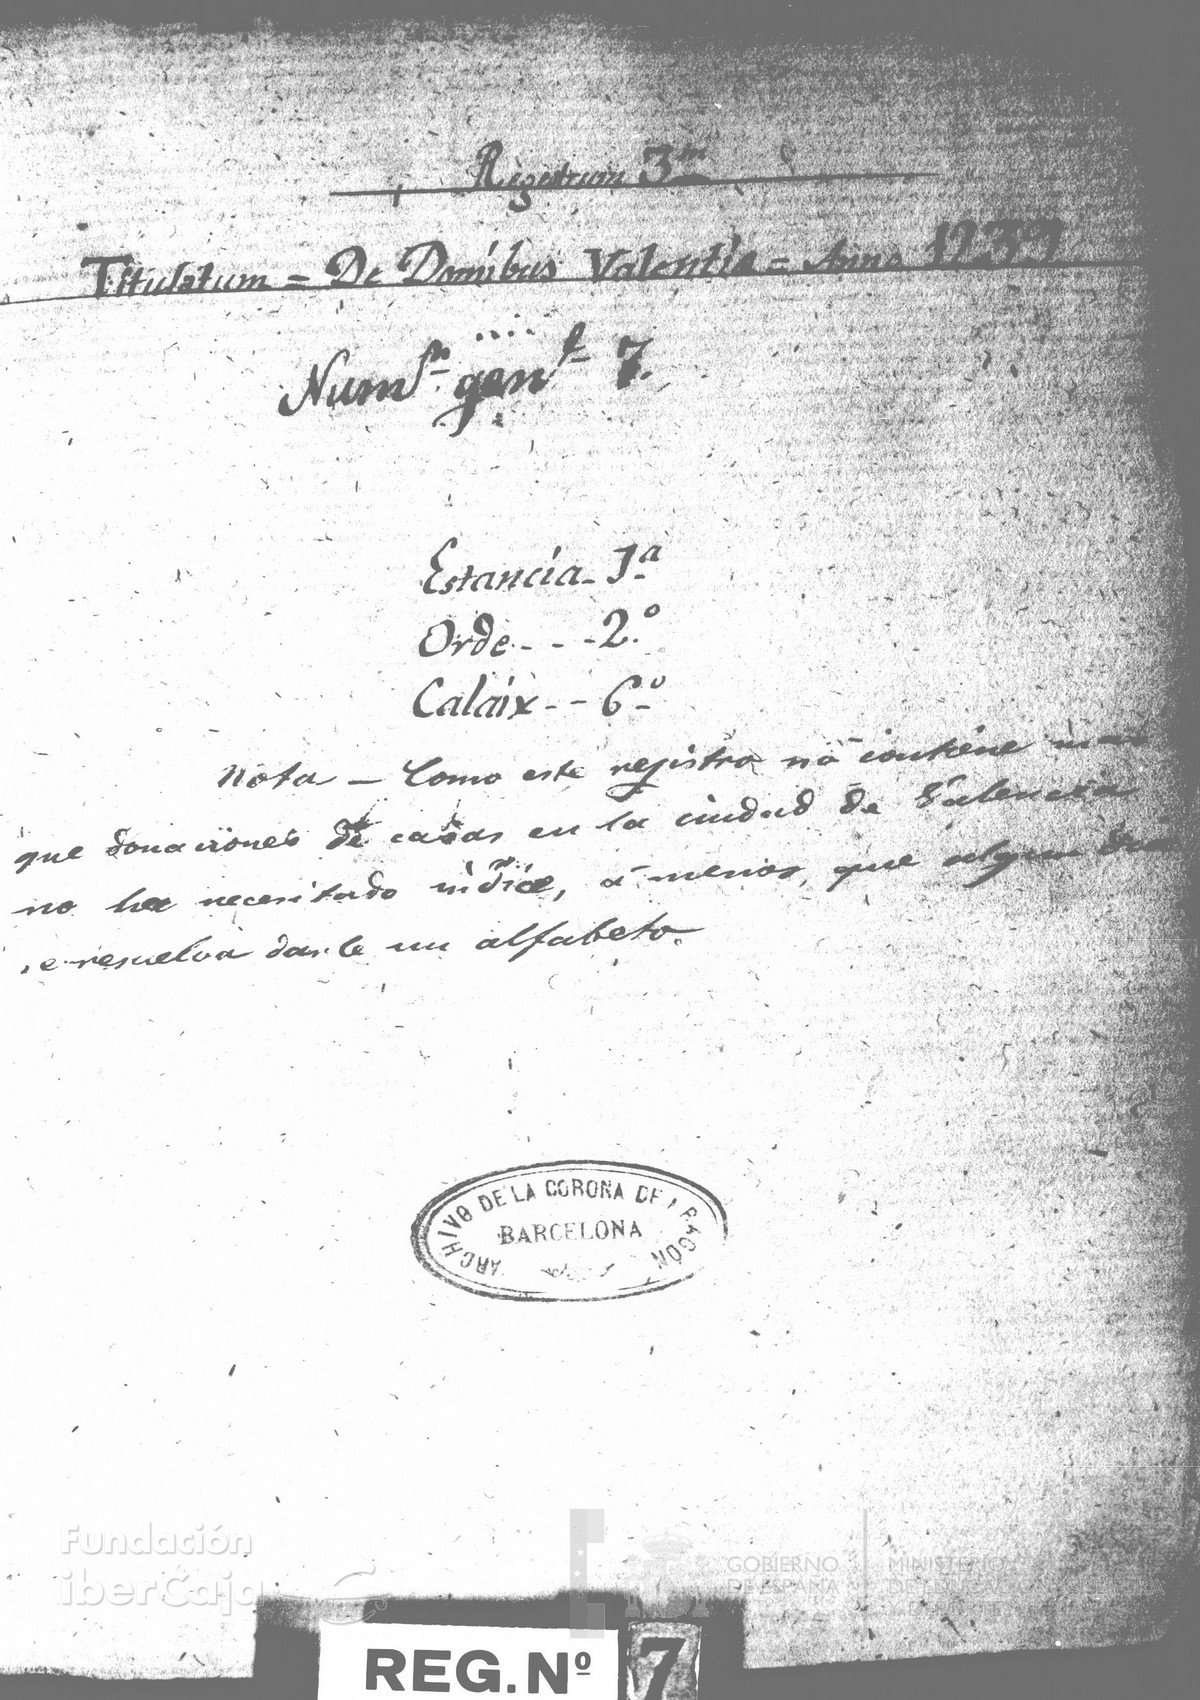 Registrum 3m
Titulatum = De Domibus Valentie = Anno 1239
Numro. genl. 7.
Estancia - 1.ª
Orde - - - 2.º
Calaix - - 6.º
Nota - Como este registro no contiene mas
que donaciones de casas en la ciudad de Valencia
no ha necesitado indice, a menos, que algun dia
se resuelva darle un alfabeto.
ARCHIVO DE LA CORONA DE ARAGÓN
BARCELONA
Fundación
iberCaja
GOBIERNO
DE ESPAÑA
MINISTERIO
DE EDUCACIÓN, CULTURA
Y DEPORTE
REG. Nº 7